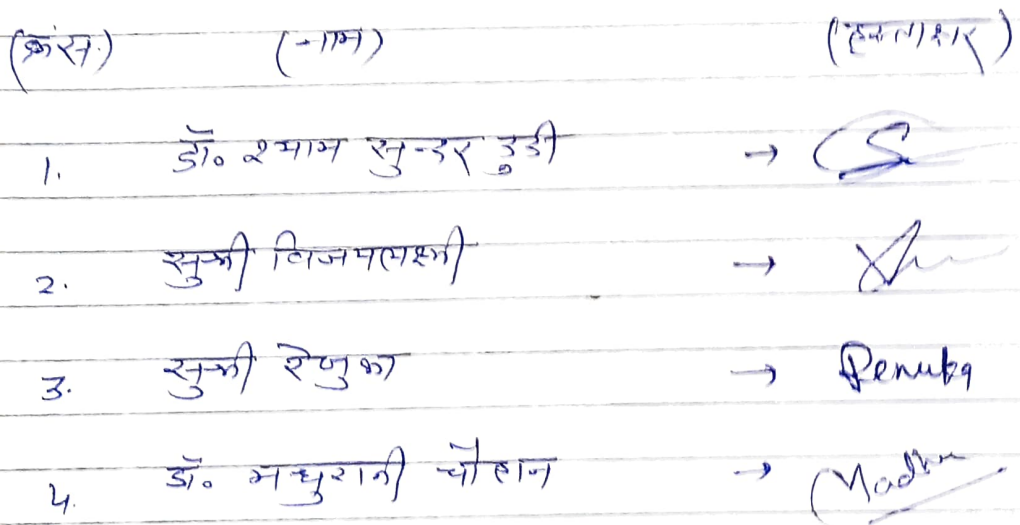 (क्र.सं.) (नाम) (हस्ताक्षर)
1. डॉ॰ श्याम सुन्दर डुडी →
2. सुश्री विजयलक्ष्मी →
3. सुश्री रेणुका → Renuka
4. डॉ॰ मधुरानी चौहान → Madhu